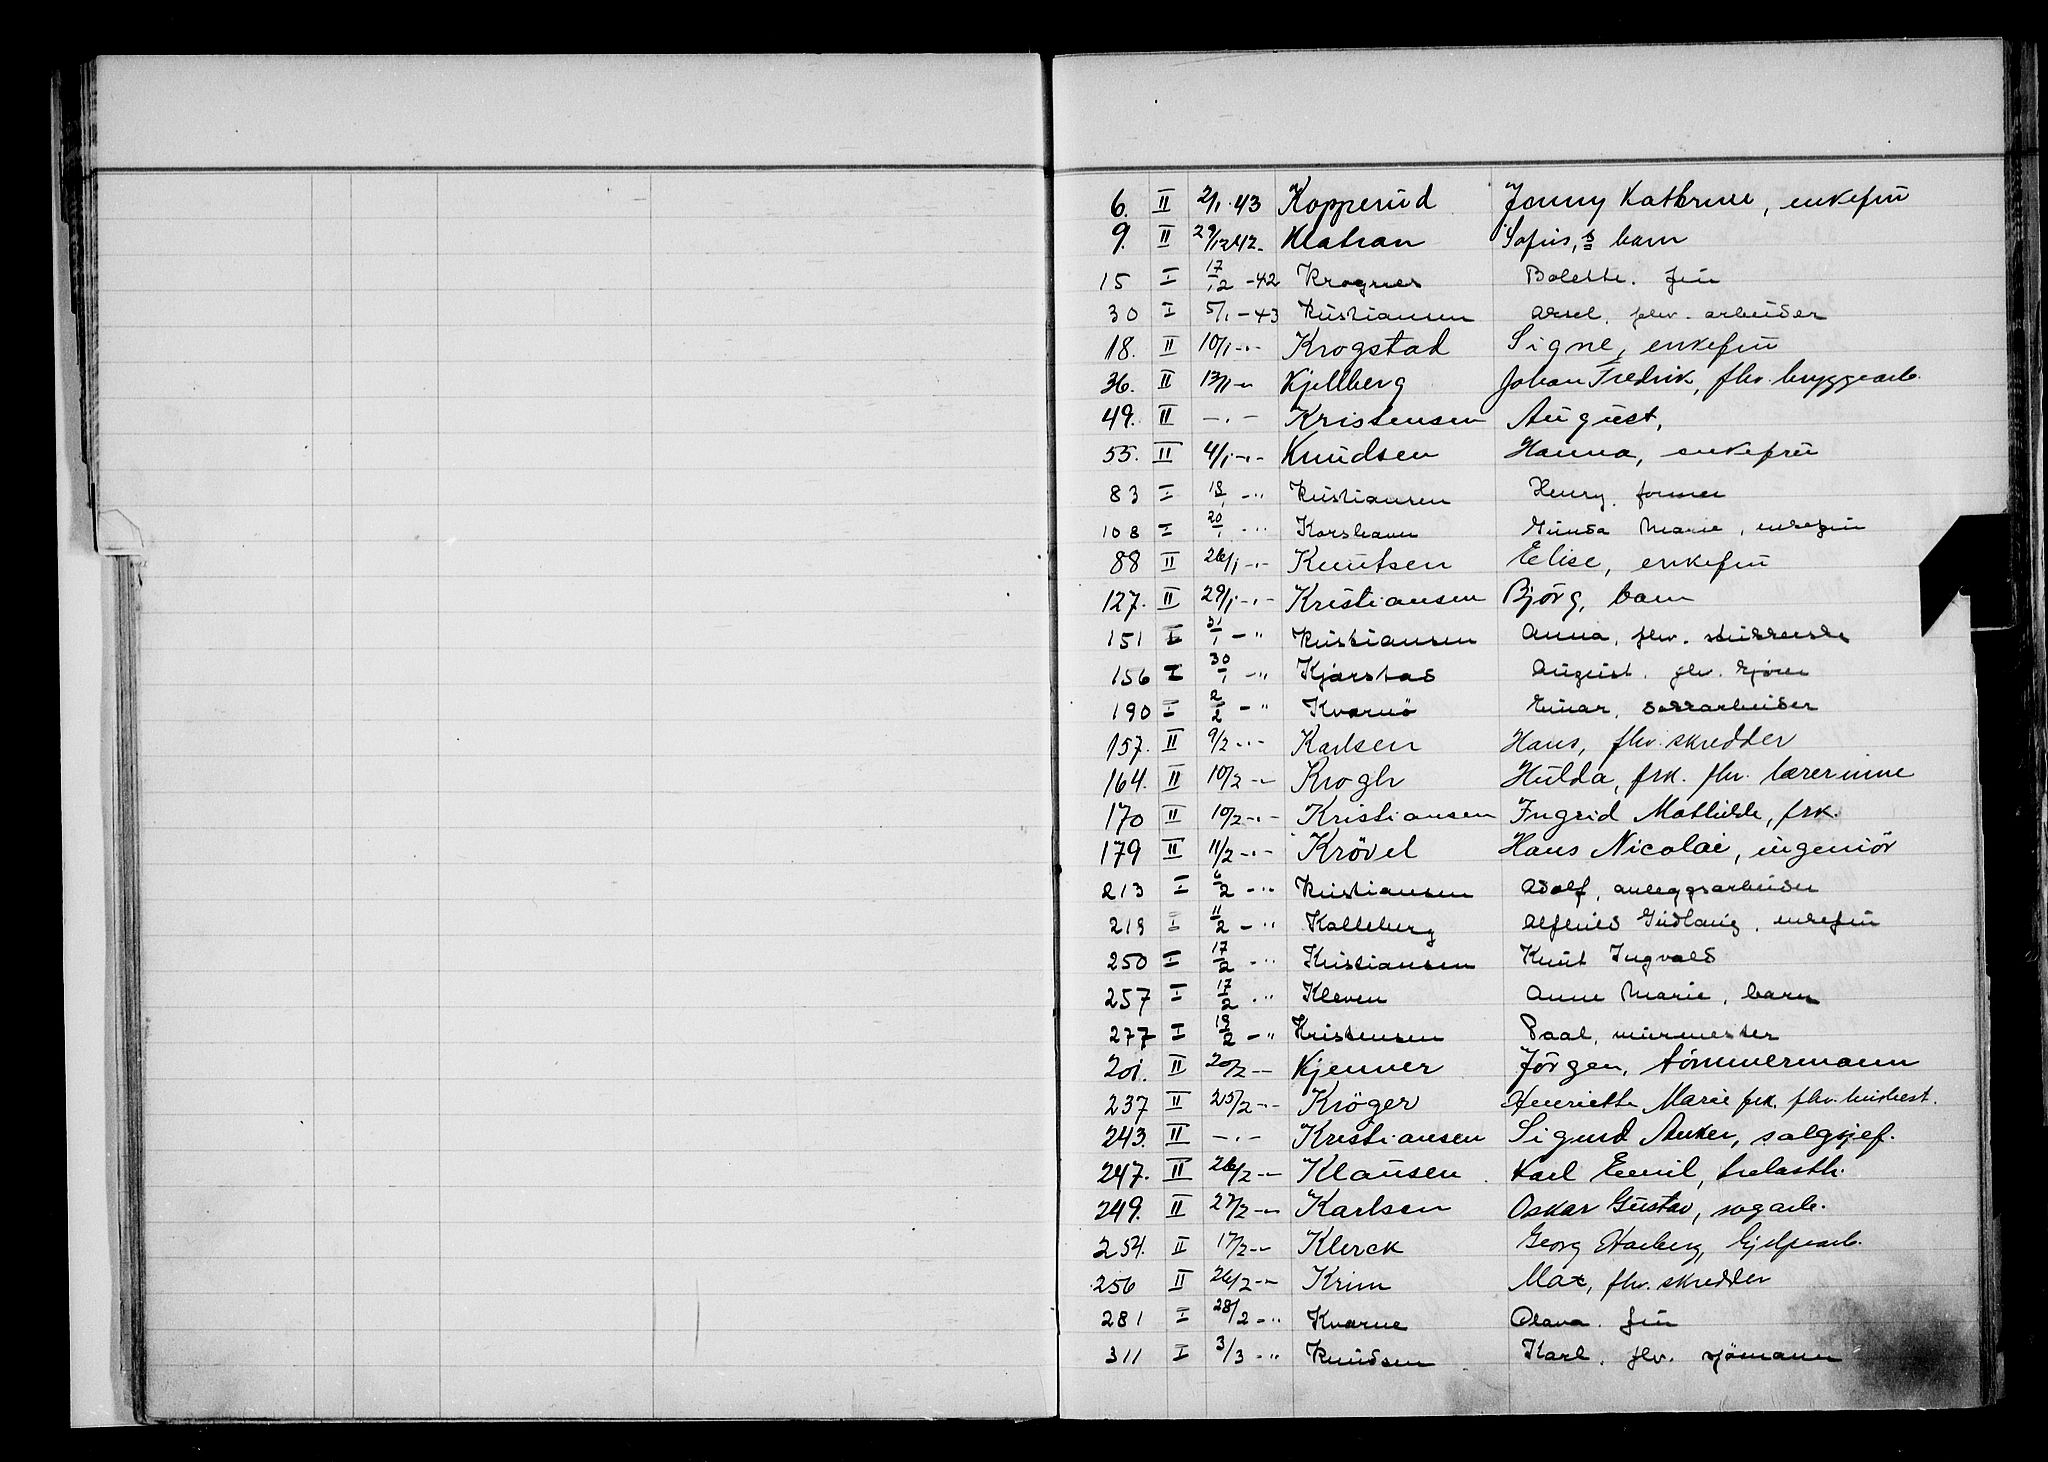 6. II 2/1 43 Kopperud Jenny Kathrine, enkefru
9. II 29/12 42 - Sofus, barn
15 I 17/12 -42 Krognes Bolette. fru
30 I 5/1 -43 Kristiansen Aksel. fhv. arbeider
18. II 10/1 -.- Krogstad Signe, enkefru
36. II 13/1 -"- Kjellberg Johan Fredrik, fhv. bryggearb.
49. II -.- Kristensen August,
55. II 4/1 -.- Knudsen Hanna, enkefru
83 I 18/1 -" Kristiansen Henry. former
108 I 20/1 -" Korshavn Gunda Marie, enkefru
88 II 26/1 -.- Knutsen Elise, enkefru
127. II 29/1 -.- Kristiansen Björg, barn
151 I 31/1 -" Kristiansen Anna, fhv.
156 I 30/1 -" Kjørstad August. fhv.
190 I 2/2 -" Kvarnö Einar, dokkarbeider
157. II 9/2 -.- Karlsen Hans, fhv. skredder
164. II 10/2 -.- Krogh Hulda, frk. fhv. lærerinne
170 II 10/2 -.- Kristiansen Ingrid Mathilde, frk.
179 II 11/2 -.- Krövel Hans Nicolai, ingeniör
213 I 6/2 -" Kristiansen Adolf, anleggsarbeider
219 I 11/2 -" Kalleberg Alfhild Gudlaug, enkefru
250 I 17/2 -" Kristiansen Knut Ingvald
257 I 17/2 -" Kleven Anne Marie, barn
277 I 19/2 -" Kristensen Paal, murmester
201. II 20/2 -- Kjenner Jörgen, tömmermann
237 II 25/2 -- Kröger Henriette Marie frk. fhv. husbest.
243. II -.- Kristiansen Sigurd Anker, salgsjef.
247. II 26/2 -- Klausen Karl Emil, trelasth.
249. II 27/2 -- Karlsen Oskar Gustav, sagarb.
254. II 17/2 -- Klerck Georg Harberg, hjelpearb.
256 II 26/2 -- Krim Max, fhv. skredder
281 I 28/2 -" Kvarne Olava. fru
311 I 3/3 -" Knudsen Karl. fhv. sjömann